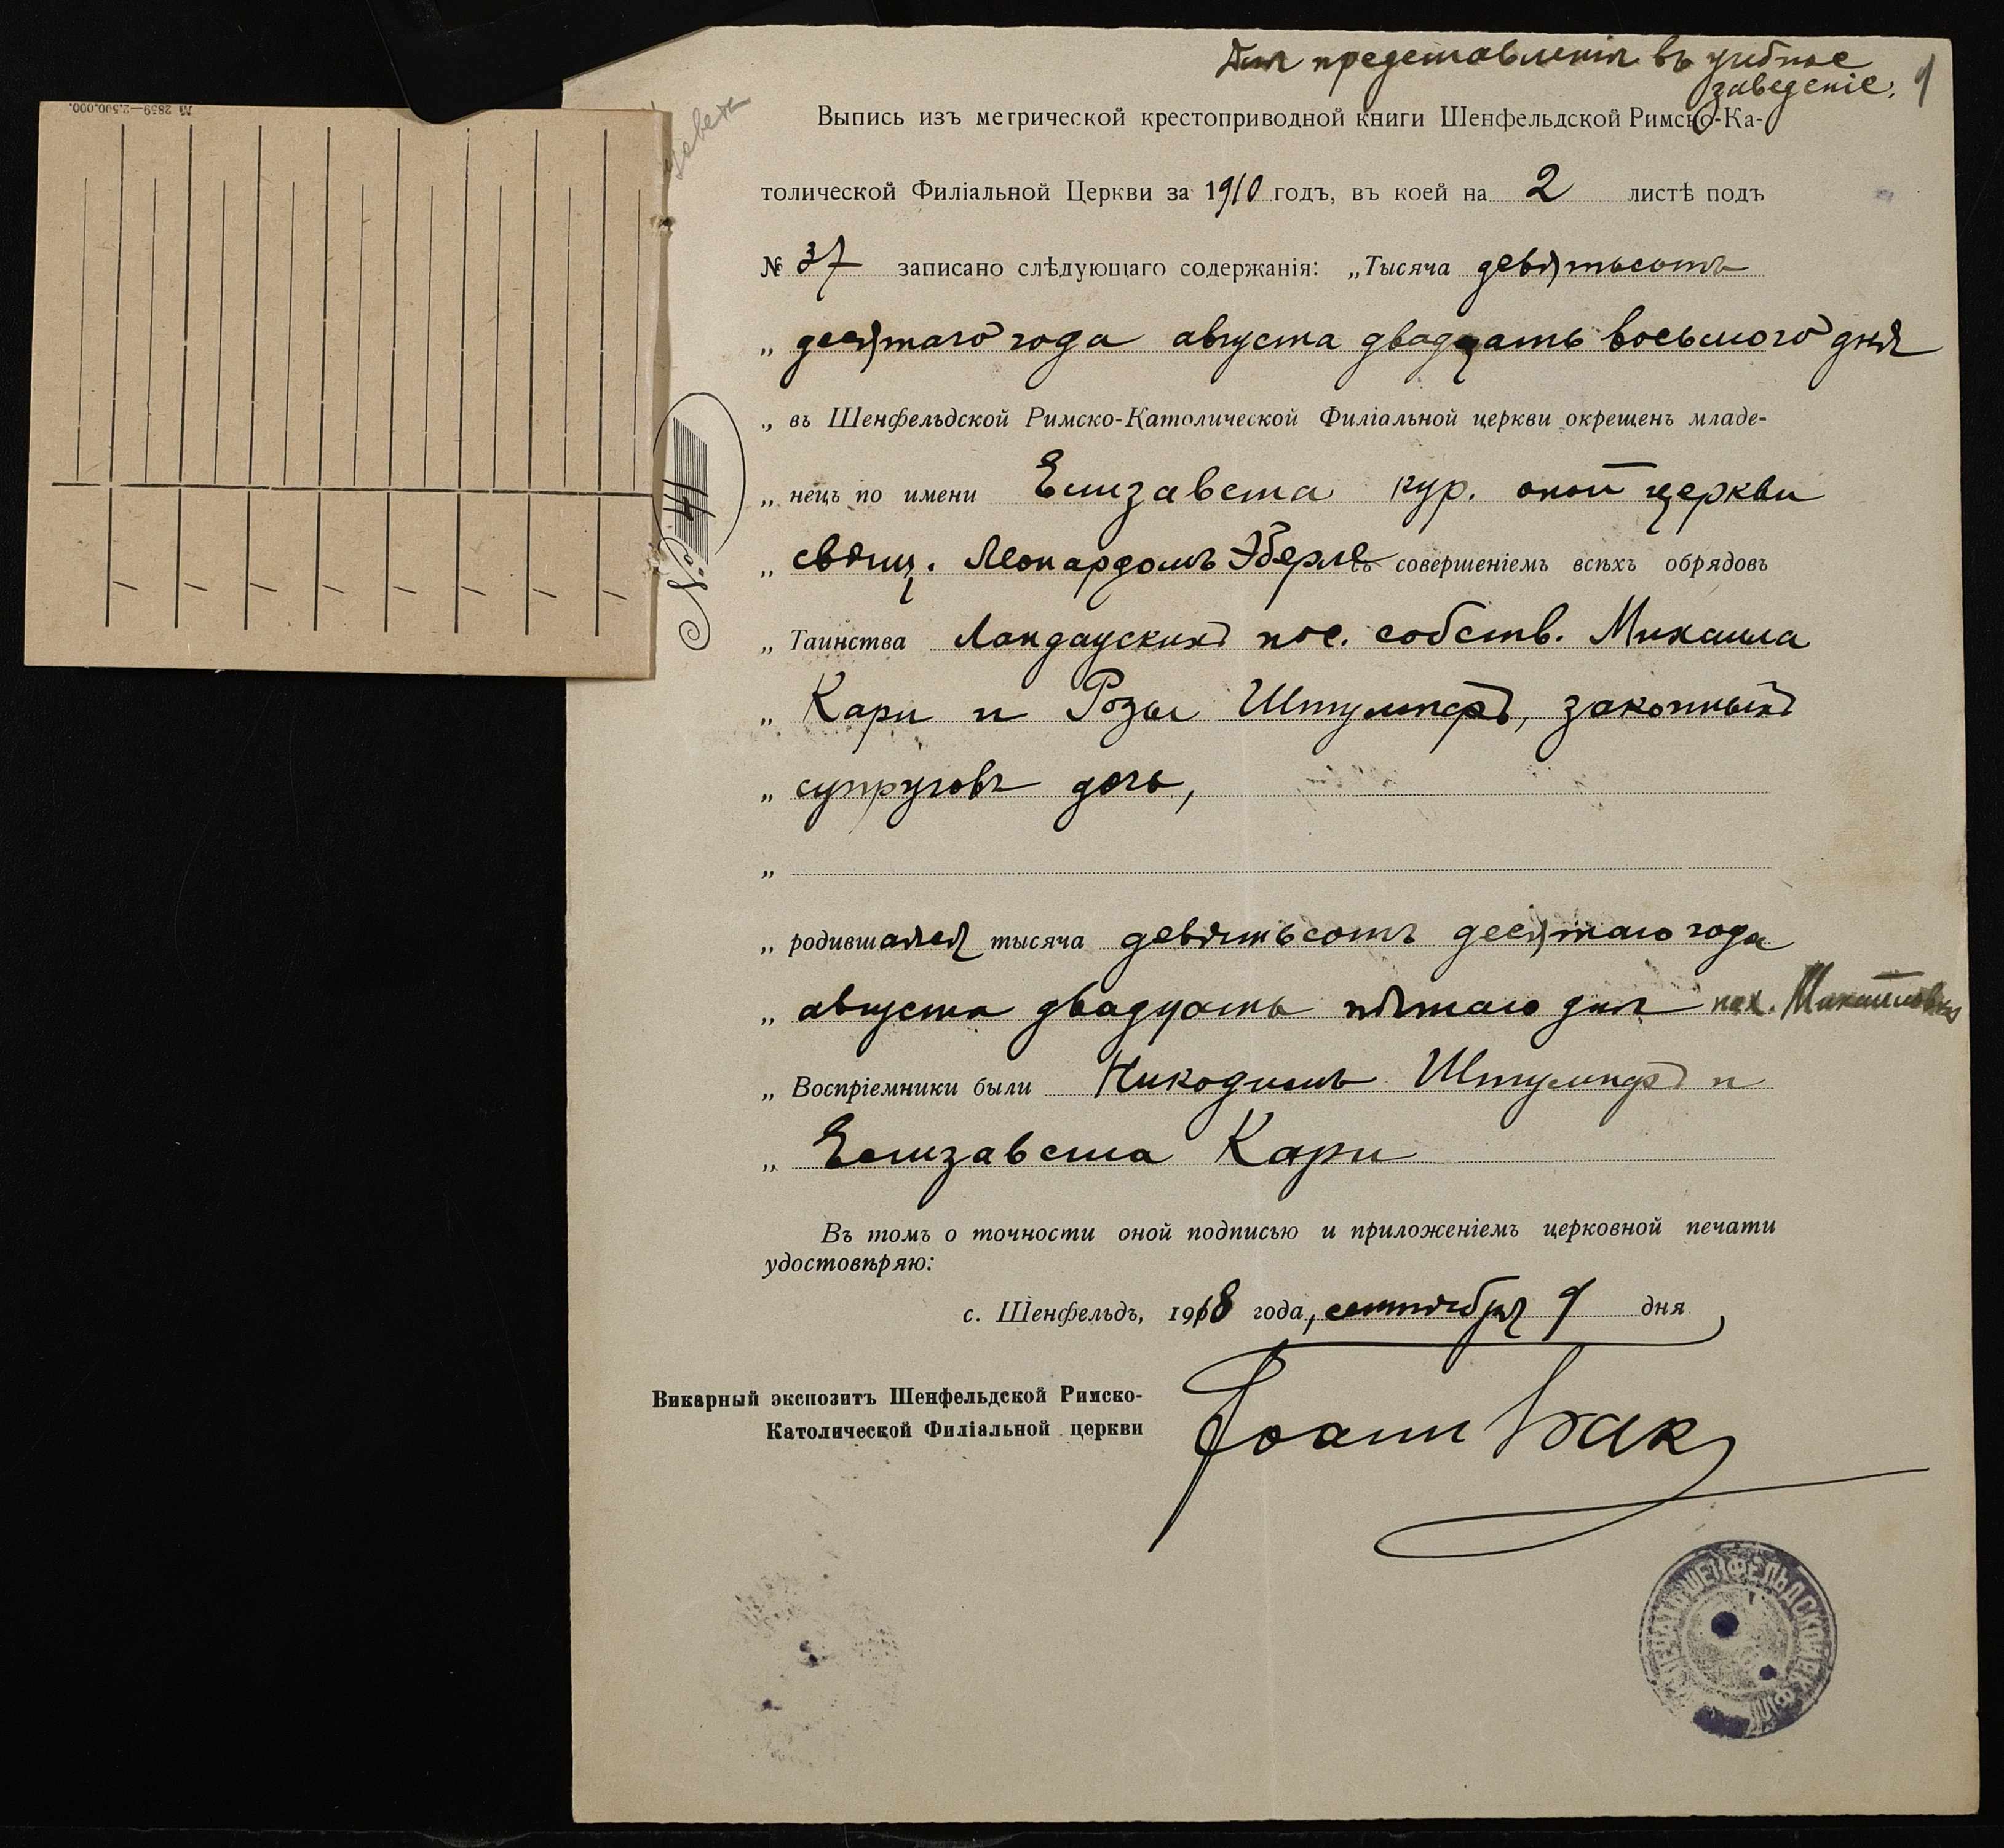 Для представленія въ учебное
заведеніе.
Выпись изъ метрической крестоприводной книги Шенфельдской Римско-Ка-
толической Филіальной Церкви за 1910 годъ, въ коей на 2 листѣ подъ
№ 37 записано слѣдующаго содержанія: „Тысяча девятьсотъ
„ десятаго года августа двадцать восьмого дня
„ въ Шенфельдской Римско-Католической Филіальной церкви окрещенъ младе-
„ нецъ по имени Елизавета кур. оной церкви
„ свящ. Леонардомъ Эберле съ совершеніемъ всѣхъ обрядовъ
„ Таинства Ландаускихъ пос. собств. Михаила
„ Кари и Розы Штумпфъ, законныхъ
„ супруговъ дочь,
„
„ родившаяся тысяча девятьсотъ десятаго года
„ августа двадцать пятаго дня пос. Михайловка
„ Воспріемники были Никодимъ Штумпфъ и
„ Елизавета Кари
Въ томъ о точности оной подписью и приложеніемъ церковной печати
удостовѣряю:
с. Шенфельдъ, 1918 года, сентября 9 дня
Викарный экспозитъ Шенфельдской Римско-
Католической Филіальной церкви
Іоаннъ Бак
№ 14
№ 2859—2.500.000.